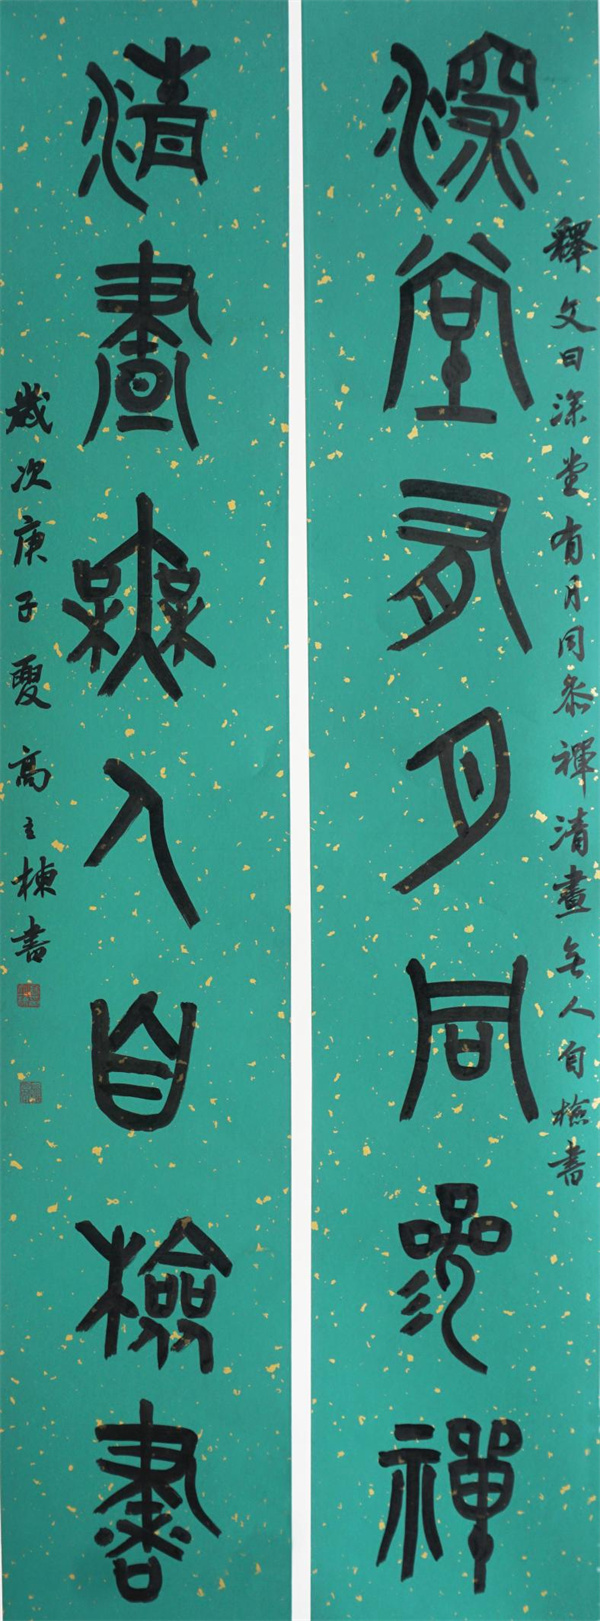 釋文曰深堂有月同叅禪清晝無人自檢書
深堂有月同參禪
清晝無人自檢書
歲次庚子夏高立棟書